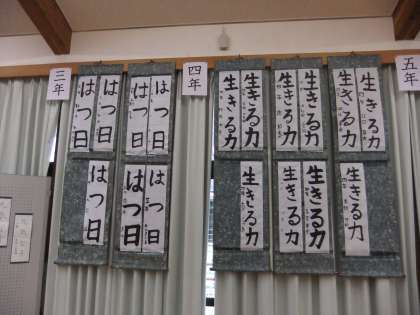 三年
はつ日
はつ日
はつ日
はつ日
はつ日
はつ日
はつ日
四年
生きる力
生きる力
生きる力
生きる力
生きる力
生きる力
生きる力
生きる力
生きる力
生きる力
五年